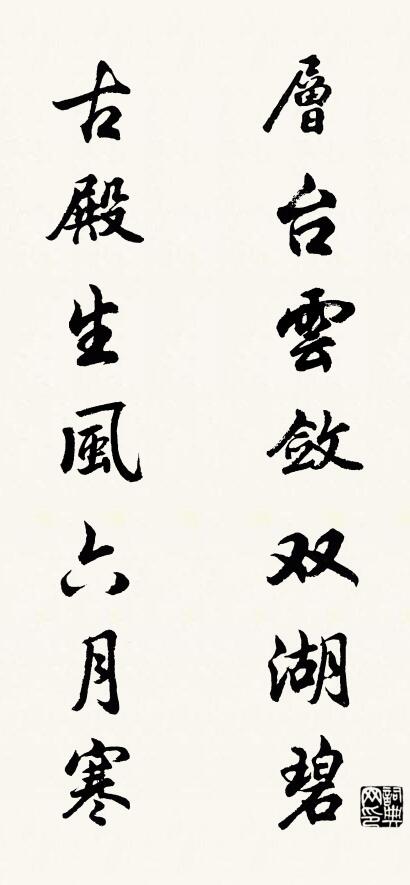 層台雲斂双湖碧
古殿生風六月寒
詞典网印